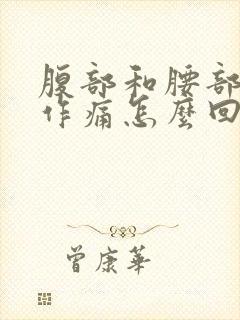 腹部和腰部
作痛怎麼回
曾康華